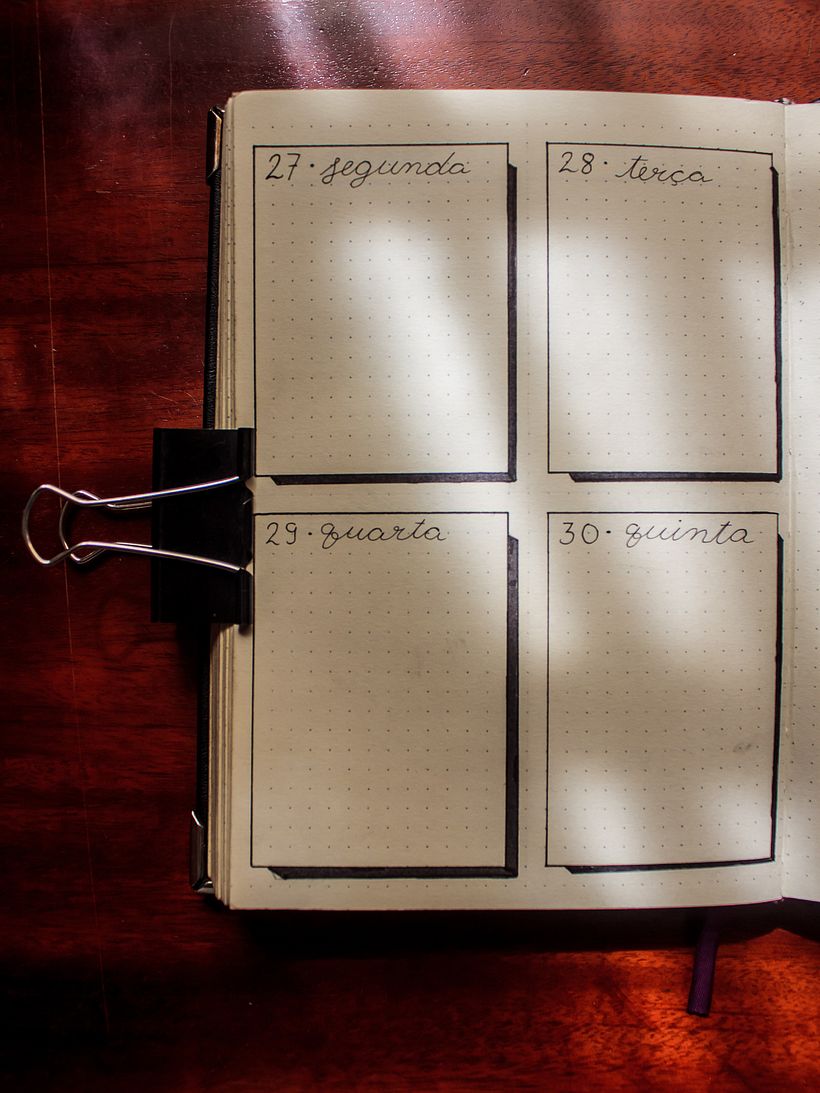 27 · segunda
28 · terça
29 · quarta
30 · quinta